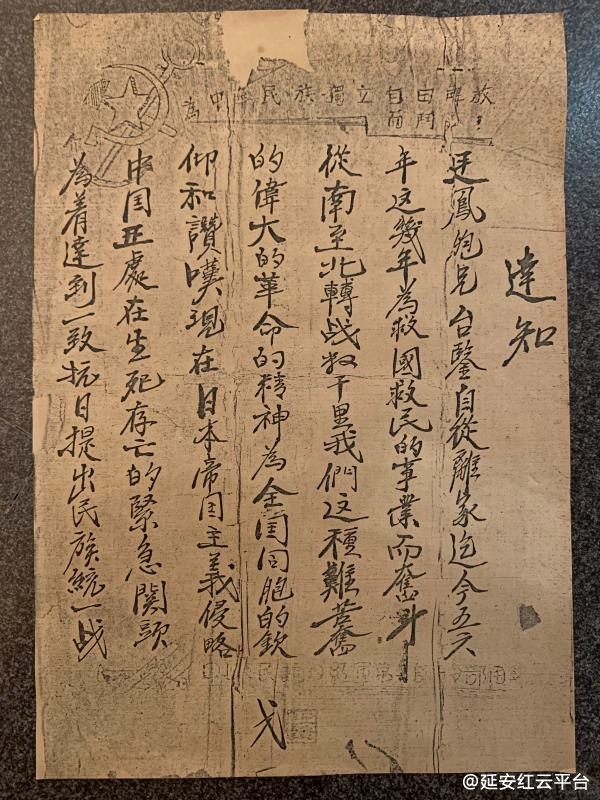 為中華民族獨立自由解放
而鬥
達知
廷鳳胞兄台鑒自從離家迄今五六
年这幾年為救國救民的事業而奮斗
從南至北轉战数千里我們这種難苦奮
的偉大的革命的精神為全国同胞的欽
仰和讚嘆現在日本帝国主義侵略
中国正處在生死存亡的緊急関頭
為着達到一致抗日提出民族統一战
@延安红云平台